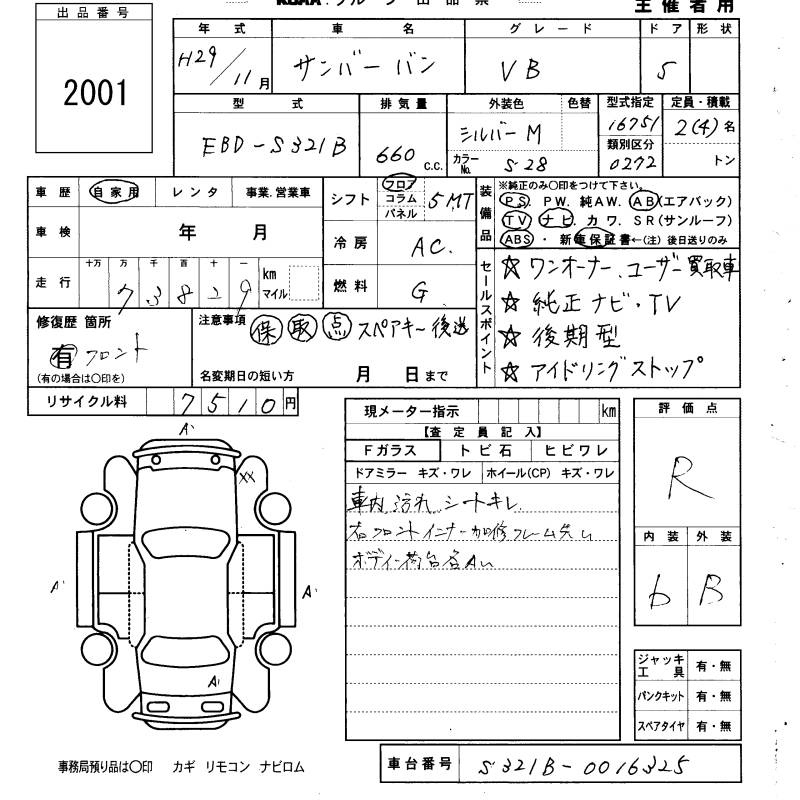 出品番号
2001
主催者用
年式 車名 グレード ドア 形状
H29/11月 サンバーバン VB 5
型式 排気量 外装色 色替 型式指定 定員・積載
EBD-S321B 660 c.c. シルバーM 16751 2(4)名
カラーNo. S28 類別区分 0272 トン
車歴 自家用 レンタ 事業.営業車
車検 年 月
走行 十万 万 千 百 十 一 km マイル
73829
シフト フロア コラム パネル 5MT
冷房 AC.
燃料 G
装備品
※純正のみ〇印をつけて下さい。
PS. PW. 純AW. AB(エアバック)
TV ナビ. カワ. SR(サンルーフ)
ABS・ 新車保証書←(注)後日送りのみ
セールスポイント
☆ワンオーナー、ユーザー買取車
☆純正ナビ・TV
☆後期型
☆アイドリングストップ
修復歴 箇所
有 フロント
(有の場合は〇印を)
注意事項 保 取 点 スペアキー後送
名変期日の短い方 月 日まで
リサイクル料 7510円
現メーター指示 km
【査定員記入】
Fガラス トビ石 ヒビワレ
ドアミラー キズ・ワレ ホイール(CP) キズ・ワレ
車内汚れ シートキレ
右フロントインナー加修フレーム
ボディ荷台各A
評価点
R
内装 外装
b B
A'
XX
A' A'
A'
ジャッキ工具 有・無
パンクキット 有・無
スペアタイヤ 有・無
事務局預り品は〇印 カギ リモコン ナビロム
車台番号 S321B-0016325